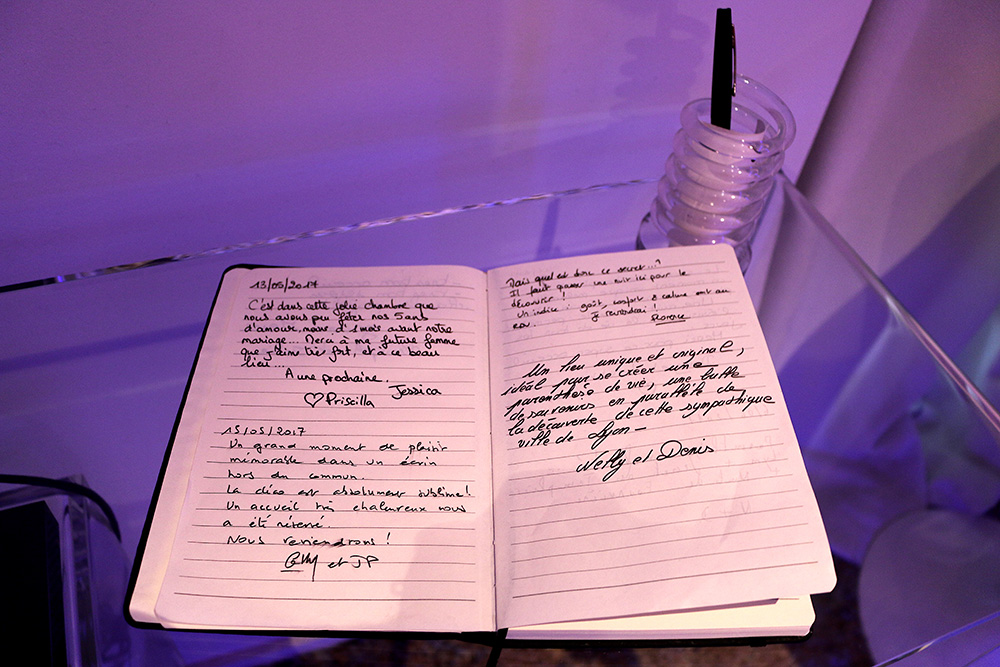 13/05/2017
C'est dans cette jolie chambre que
nous avons pu fêter nos 5 ans
d'amour, nous, d'1 mois avant notre
mariage... Merci à ma future femme
que j'aime très fort, et à ce beau
lieu...
A une prochaine.
Jessica
♡ Priscilla
15/05/2017
Un grand moment de plaisir
mémorable dans un écrin
hors du commun.
La déco est absolument sublime!
Un accueil très chaleureux nous
a été réservé.
Nous reviendrons!
et JP
Mais quel est donc ce secret...?
Il faut passer une nuit ici pour le
découvrir!
Un indice: goût, confort & calme ont au
rdv.
Je reviendrai!
Florence
Un lieu unique et original,
idéal pour se créer une
paranthèse de vie, une bulle
de saveurs en parallèle de
la découverte de cette sympathique
ville de Lyon -
Nelly et Denis